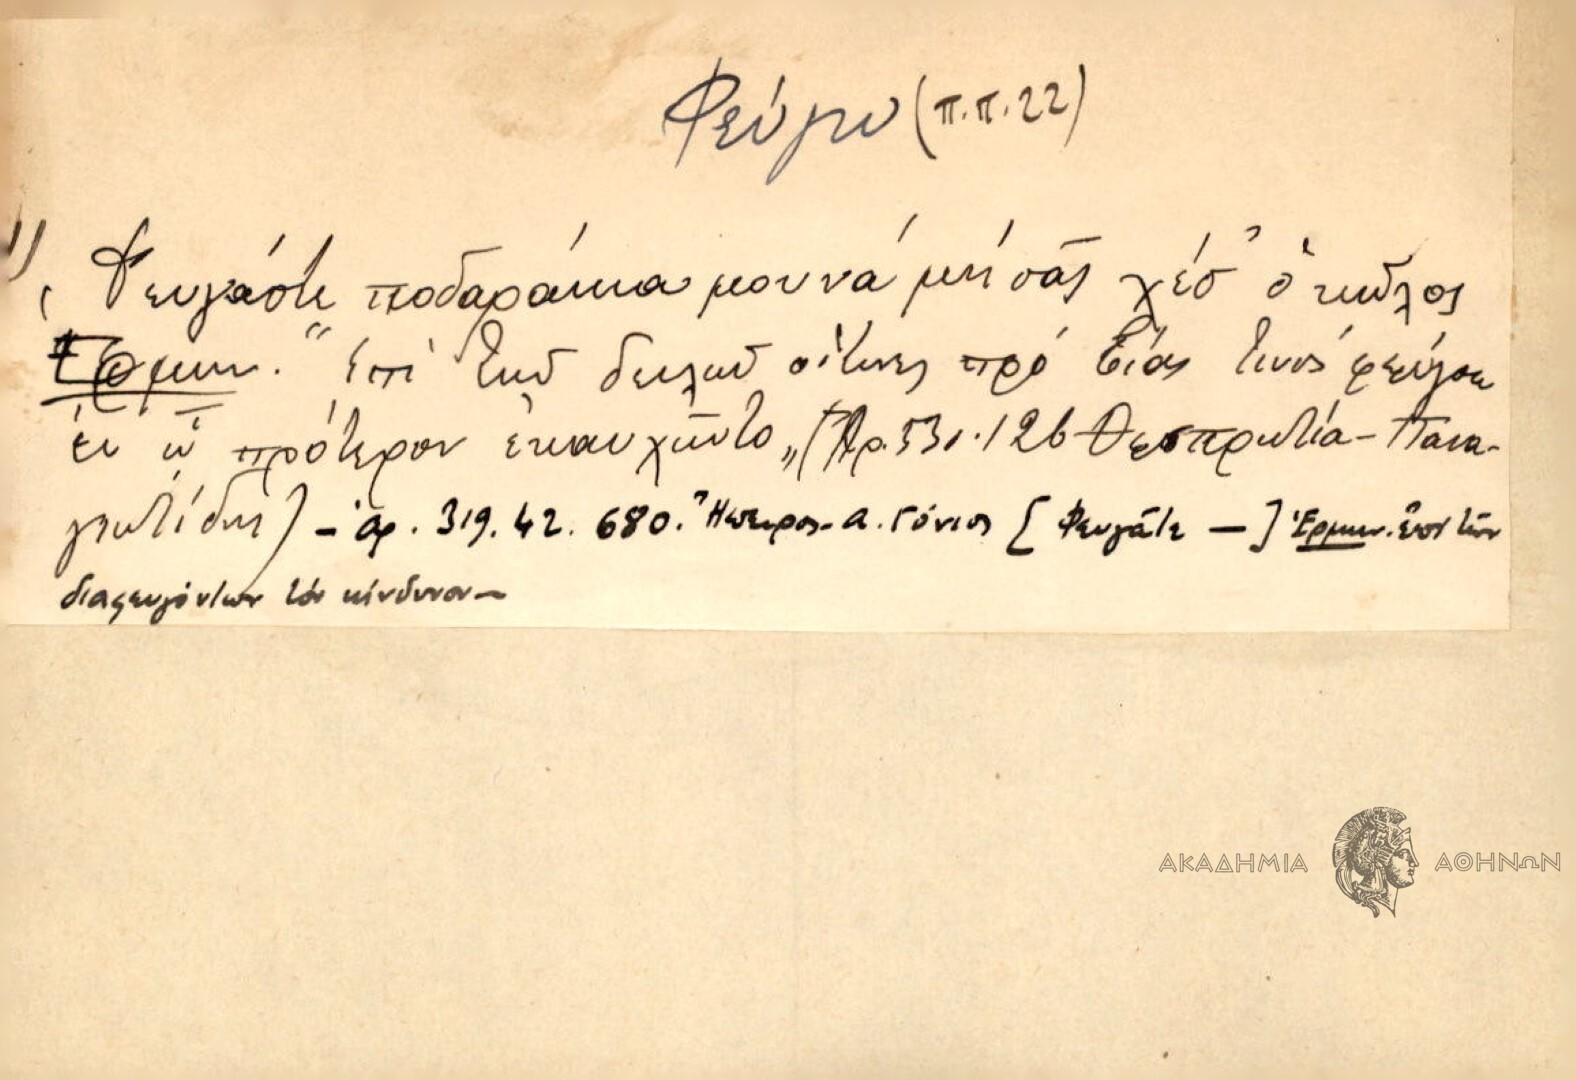 Φεύγω (π.π.22)
1) Φευγάστε ποδαράκια μου νά μή σᾶς χέσ' ὁ κῶλος
Ἑρμην. "Ἐπί τῶν δειλῶν οἵτινες πρό βίας τινός φεύγουν
ἐν ᾧ πρότερον ἐκαυχῶντο„ (Ἀρ. 126 Θεσπρωτία - Πανα-
γιωτίδης) - Ἀρ. 319. 42. 680. Ἤπειρος - Α. Γόνιος [Φευγᾶτε —] Ἑρμην. ἐπί τῶν
διαφευγόντων τόν κίνδυνον -
ΑΚΑΔΗΜΙΑ ΑΘΗΝΩΝ